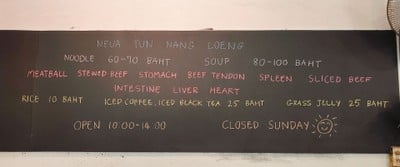 NEUA TUN NANG LOENG
NOODLE 60-70 BAHT SOUP 80-100 BAHT
MEATBALL STEWED BEEF STOMACH BEEF TENDON SPLEEN SLICED BEEF
INTESTINE LIVER HEART
RICE 10 BAHT ICED COFFEE, ICED BLACK TEA 25 BAHT GRASS JELLY 25 BAHT
OPEN 10:00-14:00 CLOSED SUNDAY